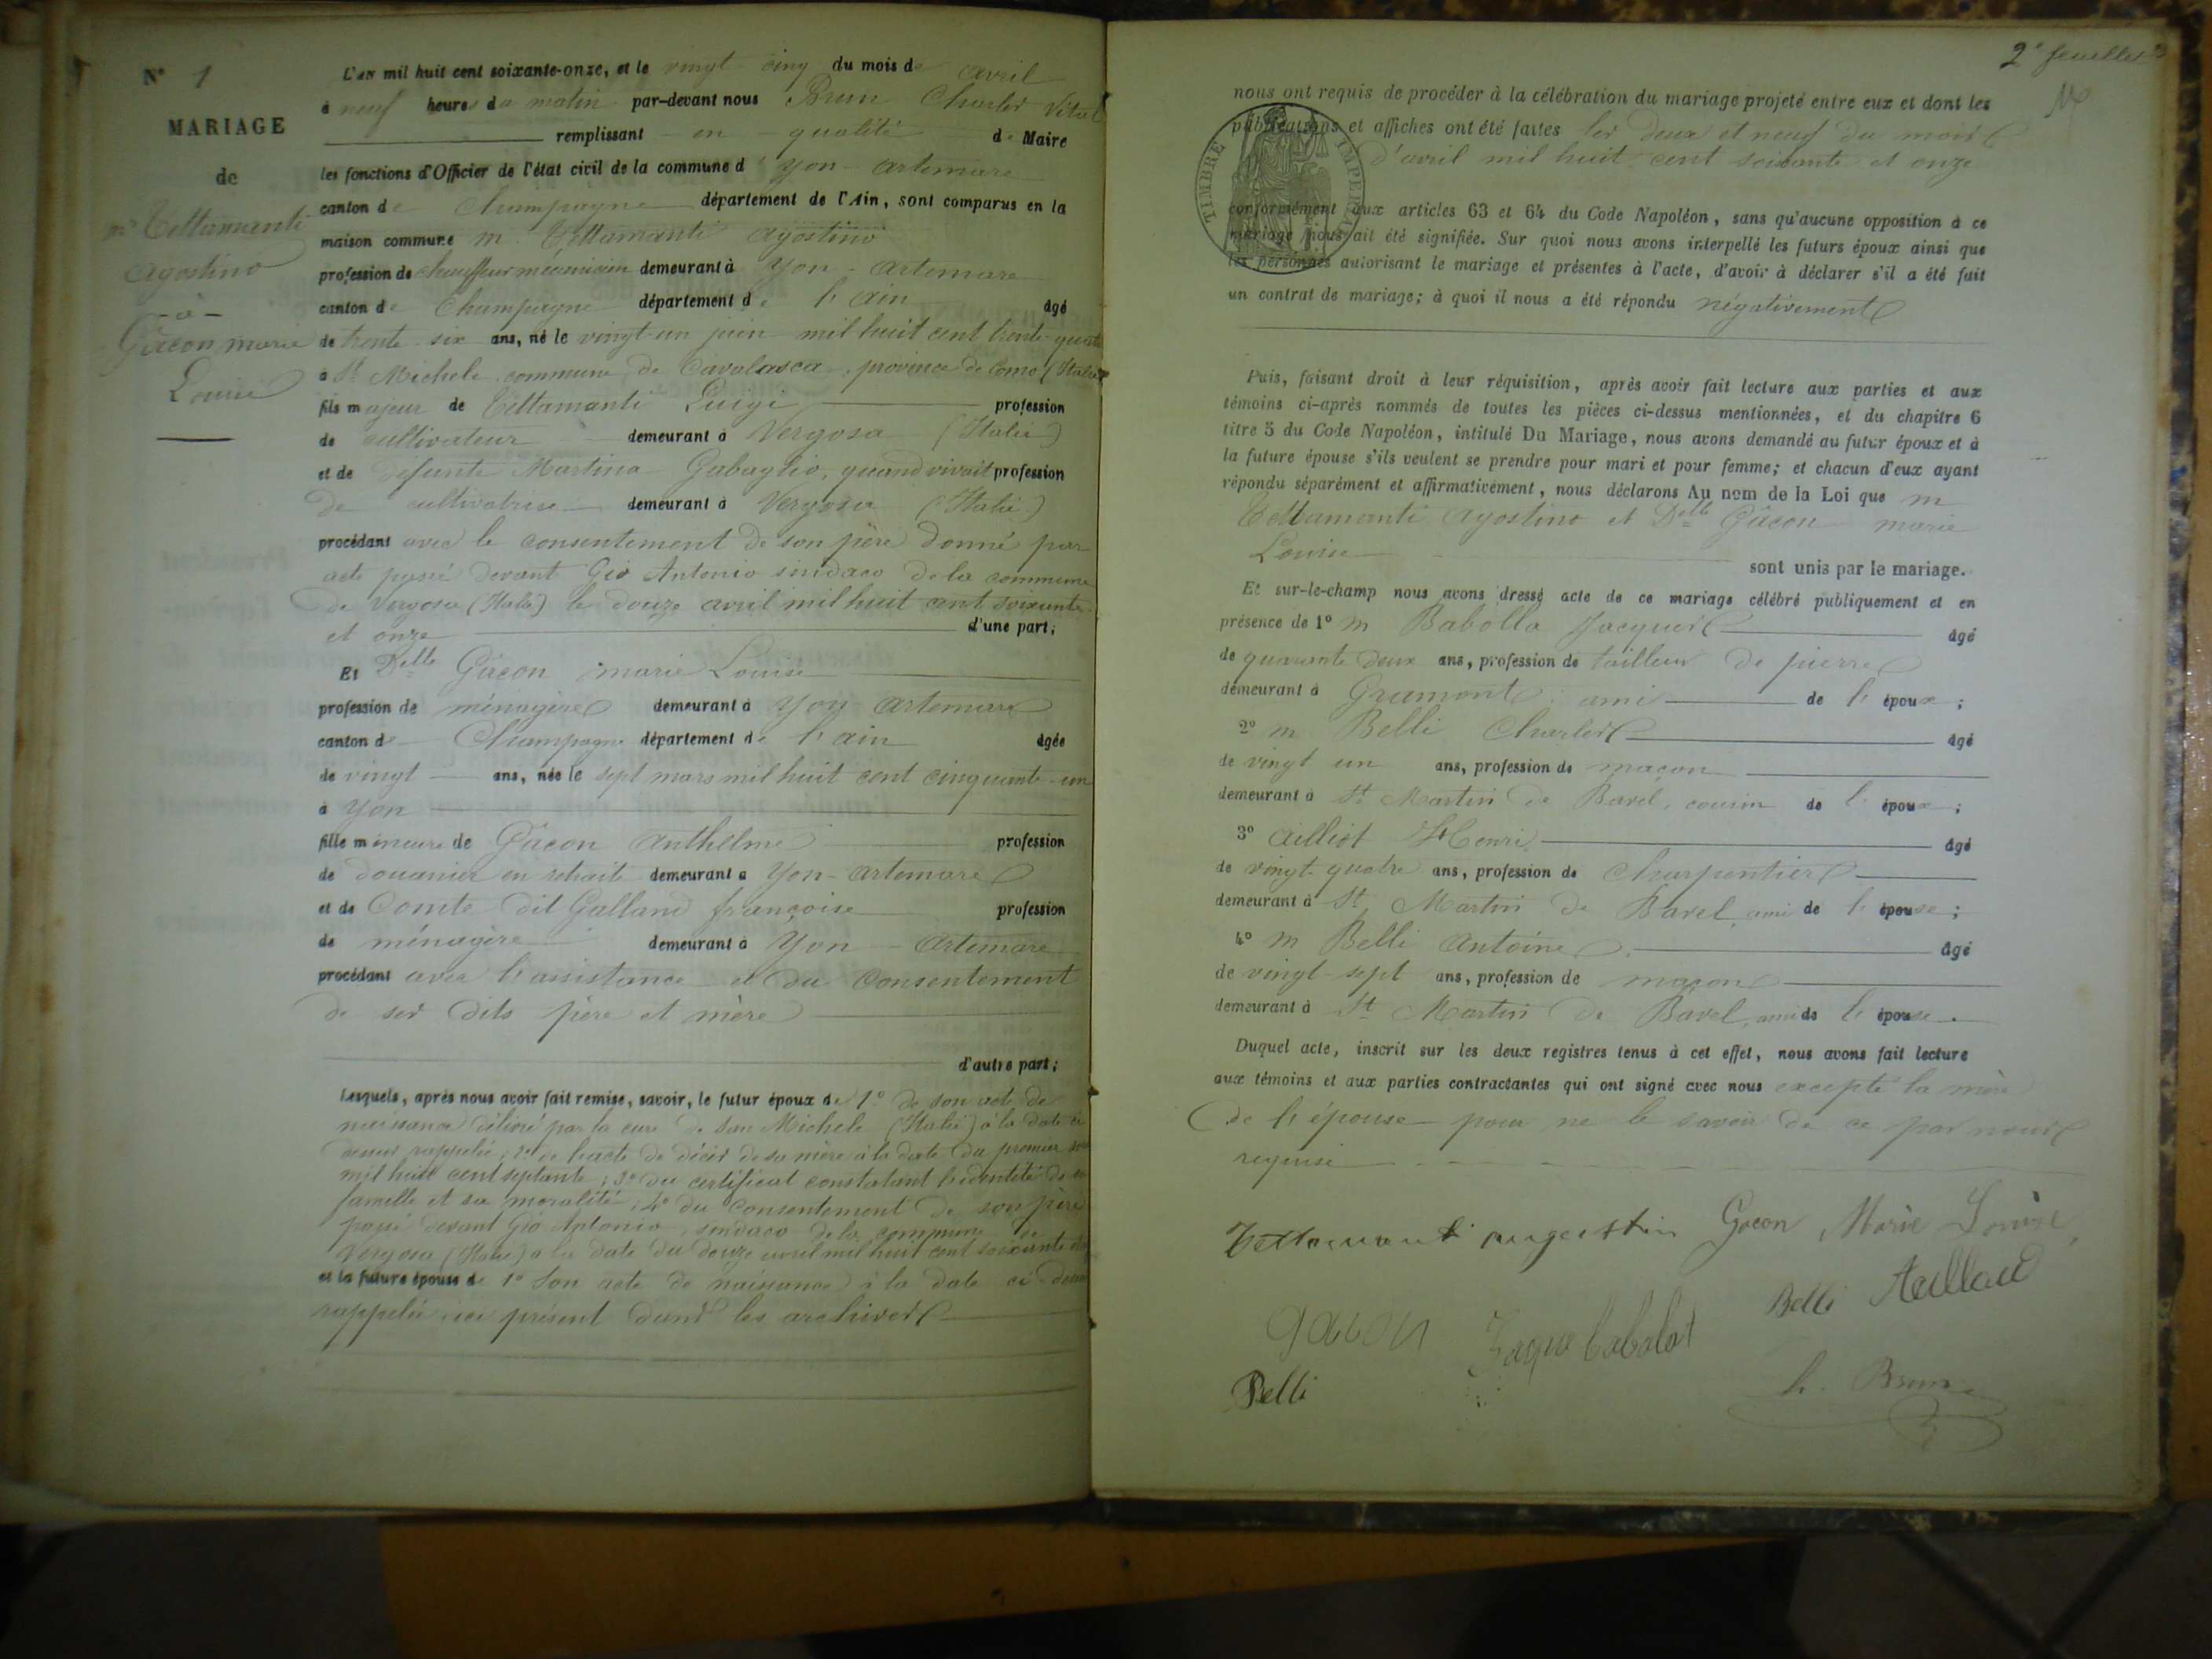 N° 1
MARIAGE
de
mr Tettamanti
Agostino
- à -
Gâcon marie
Louise
L'AN mil huit cent soixante-onze, et le vingt cinq du mois de avril
à neuf heures du matin par-devant nous Brun Charles Vital
remplissant en qualité de Maire
les fonctions d'Officier de l'état civil de la commune d'Yon-Artemare
canton de Champagne département de l'Ain, sont comparus en la
maison commune m. Tettamanti Agostino
profession de chauffeur mécanicien demeurant à Yon-Artemare
canton de Champagne département de l'ain âgé
de trente six ans, né le vingt-un juin mil huit cent trente-quatre
à St Michele commune de Cavalasca, province de Como (Italie)
fils majeur de Tettamanti Luigi profession
de cultivateur demeurant à Vergosa (Italie)
et de défunte Martina Gabaglio, quand vivait profession
de cultivatrice demeurant à Vergosa (Italie)
procédant avec le consentement de son père donné par
acte passé devant Gio Antonio sindaco de la commune
de Vergosa (Italie) le douze avril mil huit cent soixante
et onze d'une part;
Et Delle Gâcon marie Louise
profession de ménagère demeurant à Yon Artemare
canton de Champagne département de l'ain âgée
de vingt ans, née le sept mars mil huit cent cinquante-un
à Yon
fille mineure de Gâcon Anthelme profession
de douanier en retraite demeurant à Yon-Artemare
et de Comte dit Galland françoise profession
de ménagère demeurant à Yon-Artemare
procédant avec l'assistance et du consentement
de ses dits père et mère
d'autre part;
Lesquels, après nous avoir fait remise, savoir, le futur époux de 1° de son acte de
naissance délivré par la cure de San Michele (Italie) à la date ci
dessus rappelée; 2° de l'acte de décès de sa mère à la date du premier
mil huit cent septante; 3° du certificat constatant l'identité de sa
famille et sa moralité; 4° du consentement de son père
passé devant Gio Antonio, sindaco de la commune de
Vergosa (Italie) à la date du douze avril mil huit cent soixante
et la future épouse de 1° son acte de naissance à la date ci-dessus
rappelée, ici présent dans les archives
2e feuillet
nous ont requis de procéder à la célébration du mariage projeté entre eux et dont les
publications et affiches ont été faites les deux et neuf du mois
d'avril mil huit cent soixante et onze
TIMBRE IMPERIAL
conformément aux articles 63 et 64 du Code Napoléon, sans qu'aucune opposition à ce
mariage nous ait été signifiée. Sur quoi nous avons interpellé les futurs époux ainsi que
les personnes autorisant le mariage et présentes à l'acte, d'avoir à déclarer s'il a été fait
un contrat de mariage; à quoi il nous a été répondu négativement
Puis, faisant droit à leur réquisition, après avoir fait lecture aux parties et aux
témoins ci-après nommés de toutes les pièces ci-dessus mentionnées, et du chapitre 6
titre 5 du Code Napoléon, intitulé Du Mariage, nous avons demandé au futur époux et à
la future épouse s'ils veulent se prendre pour mari et pour femme; et chacun d'eux ayant
répondu séparément et affirmativement, nous déclarons Au nom de la Loi que m
Tettamanti Agostino et Delle Gâcon marie
Louise
sont unis par le mariage.
Et sur-le-champ nous avons dressé acte de ce mariage célébré publiquement et en
présence de 1° m Babolla Jacques âgé
de quarante deux ans, profession de tailleur de pierre
demeurant à Gramont ami de l'époux;
2° m Belli Charles âgé
de vingt un ans, profession de maçon
demeurant à St Martin de Bavel, cousin de l'époux;
3° Ailliot Henri âgé
de vingt-quatre ans, profession de Charpentier
demeurant à St Martin de Bavel, ami de l'épouse;
4° m Belli Antoine âgé
de vingt-sept ans, profession de maçon
demeurant à St Martin de Bavel, ami de l'épouse.
Duquel acte, inscrit sur les deux registres tenus à cet effet, nous avons fait lecture
aux témoins et aux parties contractantes qui ont signé avec nous excepté la mère
de l'épouse pour ne le savoir de ce par nous
requise
Tettamanti augostin Gacon Marie Louise
Belli
gacon Jaque babolat
Belli
h. Brun